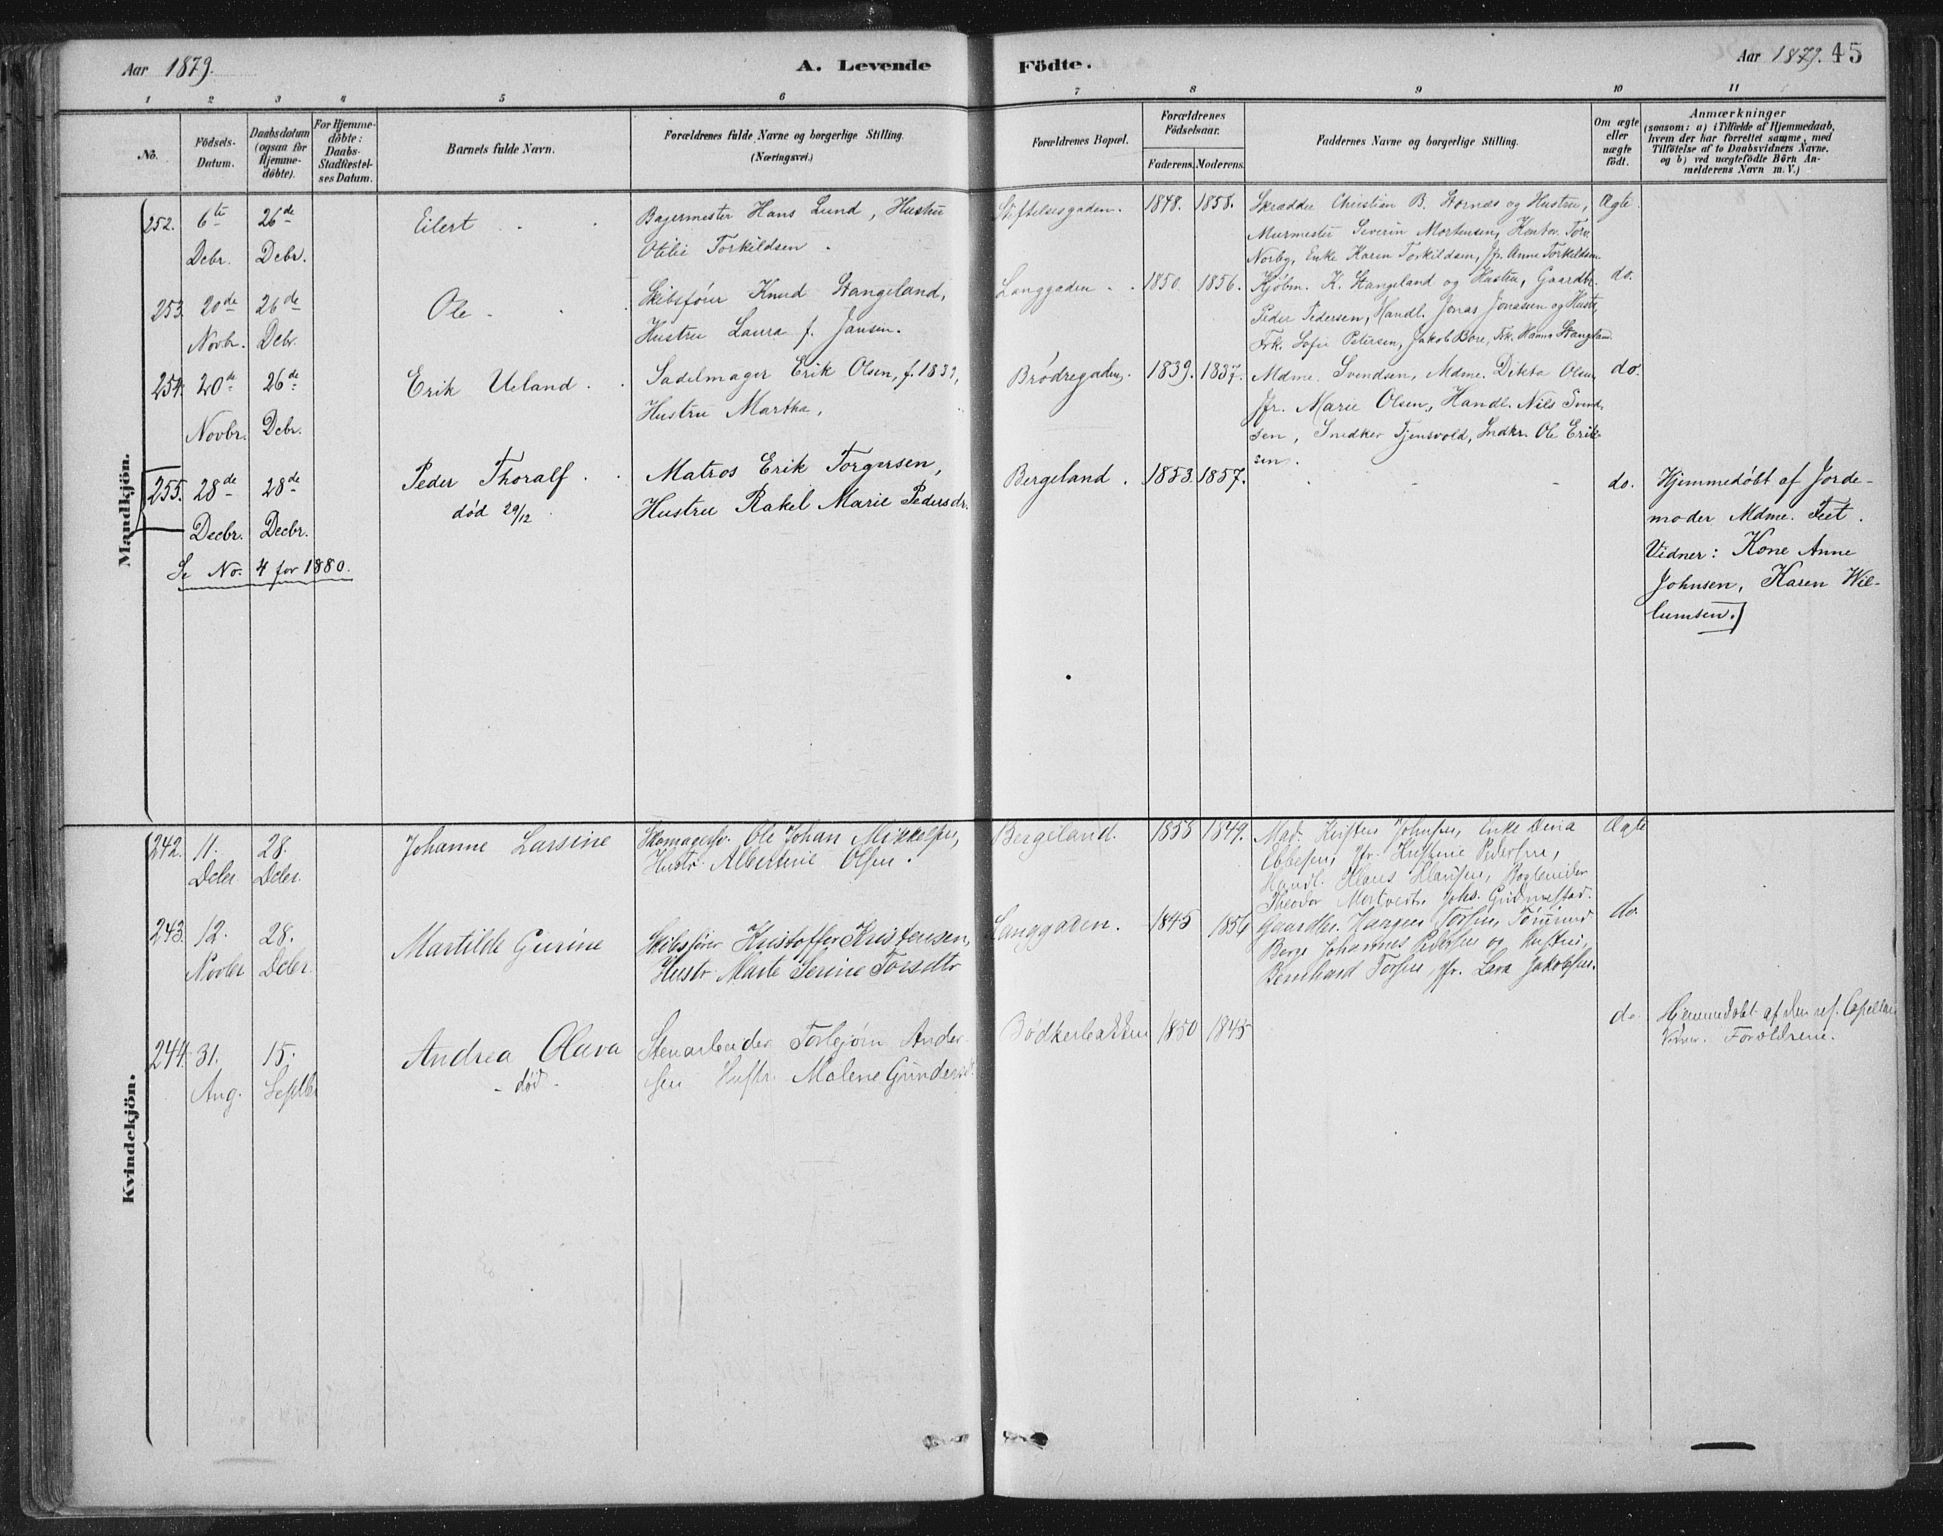 Aar 1879. A. Levende Födte. Aar 1879. 45
1 2 3 4 5 6 7 8 9 10 11
No.
Födsels-Datum.
Daabsdatum (ogsaa for Hjemme-döbte).
For Hjemme-döbte: Daabs-Stadfæstel-ses Datum.
Barnets fulde Navn.
Forældrenes fulde Navne og borgerlige Stilling.
(Næringsvei.)
Forældrenes Bopæl.
Forældrenes Födselsaar.
Faderens. Moderens.
Faddernes Navne og borgerlige Stilling.
Om ægte eller uægte födt.
Anmærkninger
(saasom: a) i Tilfælde af Hjemmedaab,
hvem der har forrettet samme, med
Tilföielse af to Daabsvidners Navne,
og b) ved uægtefödte Börn An-
melderens Navn m. V.)
Mandkjön.
252. 6te Debr. 26de Debr.
Eilert
Bagermester Hans Lund, Hustru
Otilie Torkildsen
Stiftelsesgaden. 1848. 1858.
Skrædder Christian B. Stornæs og Hustru,
Murmester Severin Mortensen, Kontor.
Norby, Enke Karen Torkildsen, Jfr. Anne Torkildsen
Ægte
253. 20de Novbr. 26de Debr.
Ole
Skibsfører Knud Stangeland,
Hustru Laura f. Jansen.
Langgaden. 1850. 1856.
Kjöbm. K. Stangeland og Hustru, Gaardbr.
Peder Pedersen, Handl. Jonas Jonassen og Hustr.,
Frk. Sofie Petersen, Jakob Bore, Frk. Hanna Stangeland
do.
254. 20de Novbr. 26de Debr.
Erik Ueland
Sadelmager Erik Olsen, f. 1839,
Hustru Martha,
Brødregaden. 1839. 1837.
Mdme. Svendsen, Mdme. Dikta Olsen
Jfr. Marie Olsen, Handl. Nils Svend-
sen, Snedker Tjensvold, Sndkr. Ole Erik-
sen.
do.
255. 28de Decbr. 28de Decbr.
Peder Thoralf
død 29/12
Matros Erik Torgersen,
Hustru Rakel Marie Pedersdr.
Bergeland. 1853. 1857.
do.
Hjemmedøbt af Jorde-
moder Mdme. Feet.
Vidner: Kone Anne
Johnsen, Karen Wil-
lumsen.
Se No. 4 for 1880.
Kvindekjön.
242. 11. Dcbr. 28 Dcbr.
Johanne Larsine
Skomagersv. Ole Johan Mikkelsen,
Hustr. Albertine Olsen.
Bergeland. 1855 1849.
Mad. Kirsten Johnsen, Enke Dina
Ebbesen, Jfr. Kristine Pedersen,
Handl. Klaus Klausen, Bogbinder
Theodor
Ægte
243. 12. Novbr 28. Dcbr.
Martilde Gurine
Skibsfører Kristoffer Kristensen,
Hustr Marte Serine Torsdtr
Langgaden. 1845 1856
Berge Johannes Pedersen og Hustru,
Bernhard Torsen, Jfr. Lava Jakobsen.
do.
244. 31. Aug. 15. Septbr
Andrea Olava
- død -
Stenarbeider Torbjørn Ander-
sen Hustr. Malene Gundersd.
Bødkerbakken 1850 1845
do
Hjemmedøbt af den res. Capellan
Vidner. Forældrene.